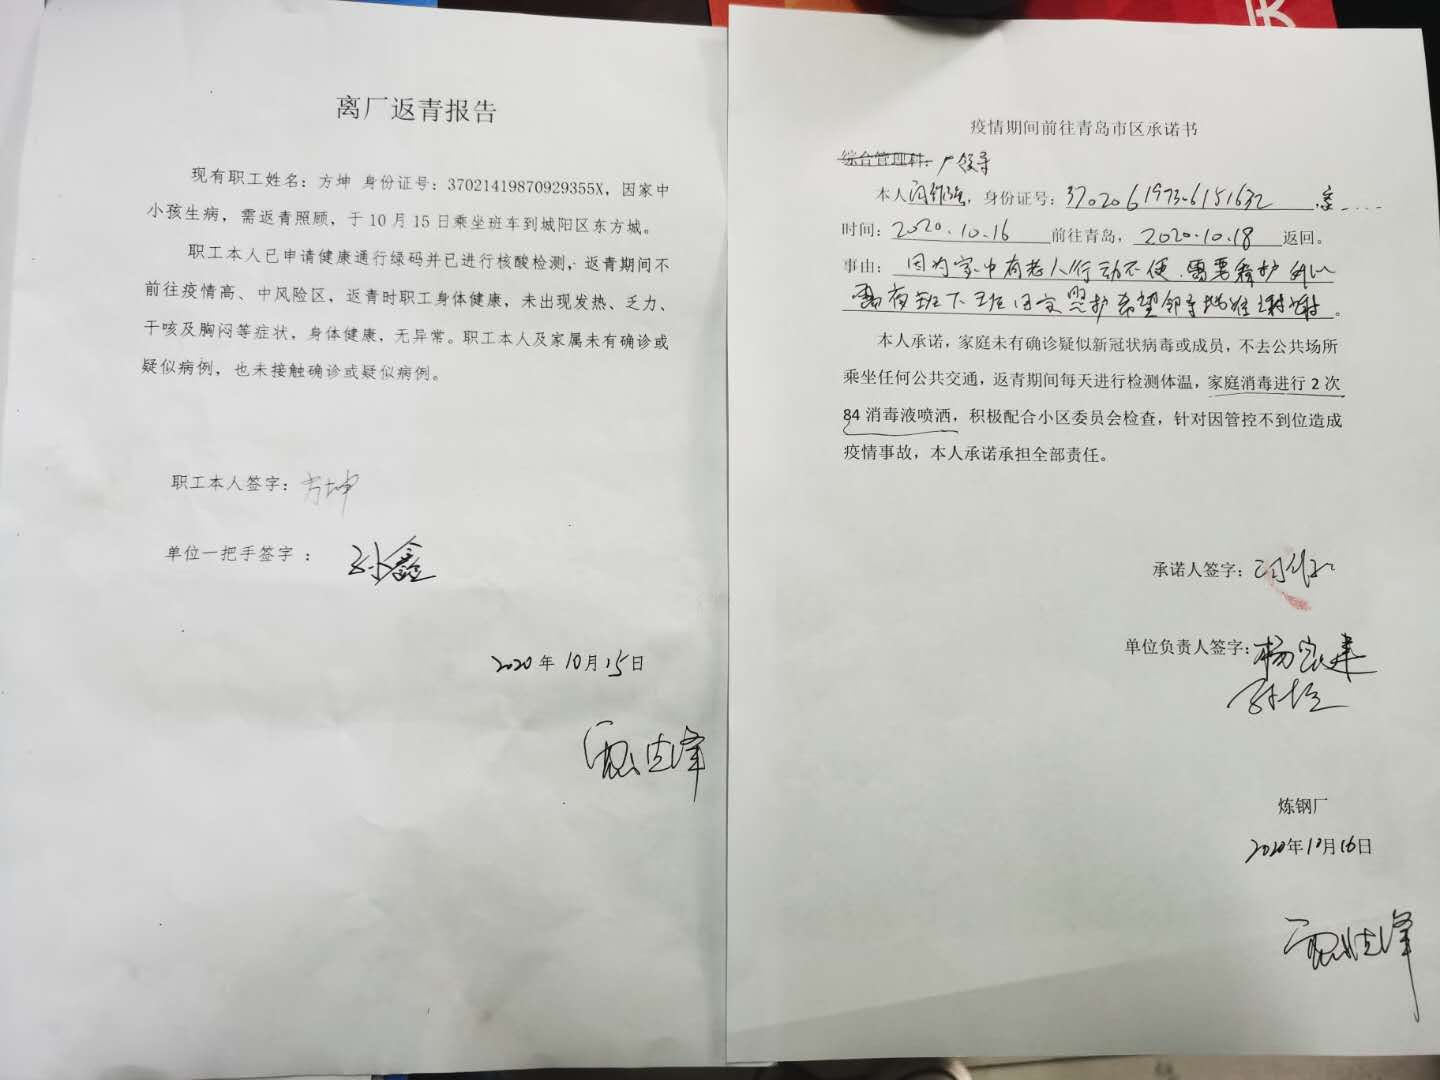 离厂返青报告
现有职工姓名：方坤 身份证号：37021419870929355X，因家中
小孩生病，需返青照顾，于10月15日乘坐班车到城阳区东方城。
职工本人已申请健康通行绿码并已进行核酸检测，返青期间不
前往疫情高、中风险区，返青时职工身体健康，未出现发热、乏力、
干咳及胸闷等症状，身体健康，无异常。职工本人及家属未有确诊或
疑似病例，也未接触确诊或疑似病例。
职工本人签字：方坤
单位一把手签字：孙鑫
2020年10月15日
疫情期间前往青岛市区承诺书
综合管理科：厂领导
本人，身份证号：370206197306151632
时间：2020.10.16前往青岛，2020.10.18返回。
事由：因为家中有老人行动不便.需要看护所以
需夜班下班回家照护希望领导批准谢谢。
本人承诺，家庭未有确诊疑似新冠状病毒或成员，不去公共场所
乘坐任何公共交通，返青期间每天进行检测体温，家庭消毒进行2次
84消毒液喷洒，积极配合小区委员会检查，针对因管控不到位造成
疫情事故，本人承诺承担全部责任。
承诺人签字：
单位负责人签字：杨家建
炼钢厂
2020年10月16日